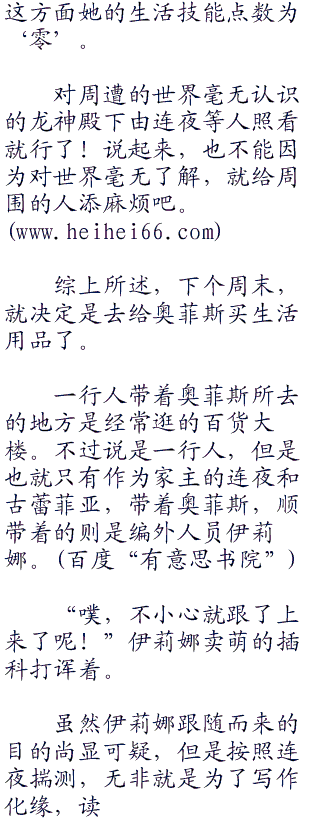 这方面她的生活技能点数为
‘零’。
对周遭的世界毫无认识
的龙神殿下由连夜等人照看
就行了！说起来，也不能因
为对世界毫无了解，就给周
围的人添麻烦吧。
(www.heihei66.com)
综上所述，下个周末，
就决定是去给奥菲斯买生活
用品了。
一行人带着奥菲斯所去
的地方是经常逛的百货大
楼。不过说是一行人，但是
也就只有作为家主的连夜和
古蕾菲亚，带着奥菲斯，顺
带着的则是编外人员伊莉
娜。(百度“有意思书院”)
“噗，不小心就跟了上
来了呢！”伊莉娜卖萌的插
科打诨着。
虽然伊莉娜跟随而来的
目的尚显可疑，但是按照连
夜揣测，无非就是为了写作
化缘，读